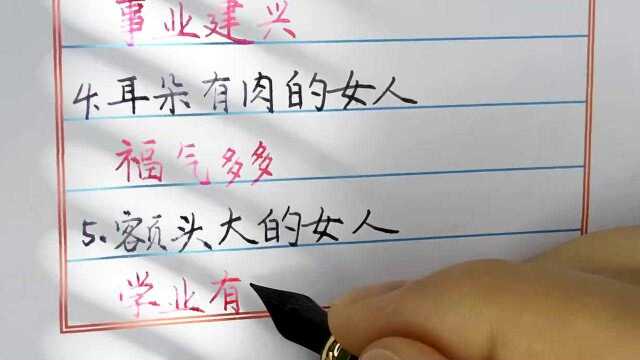 事业建兴
4.耳朵有肉的女人
福气多多
5.额头大的女人
学业有